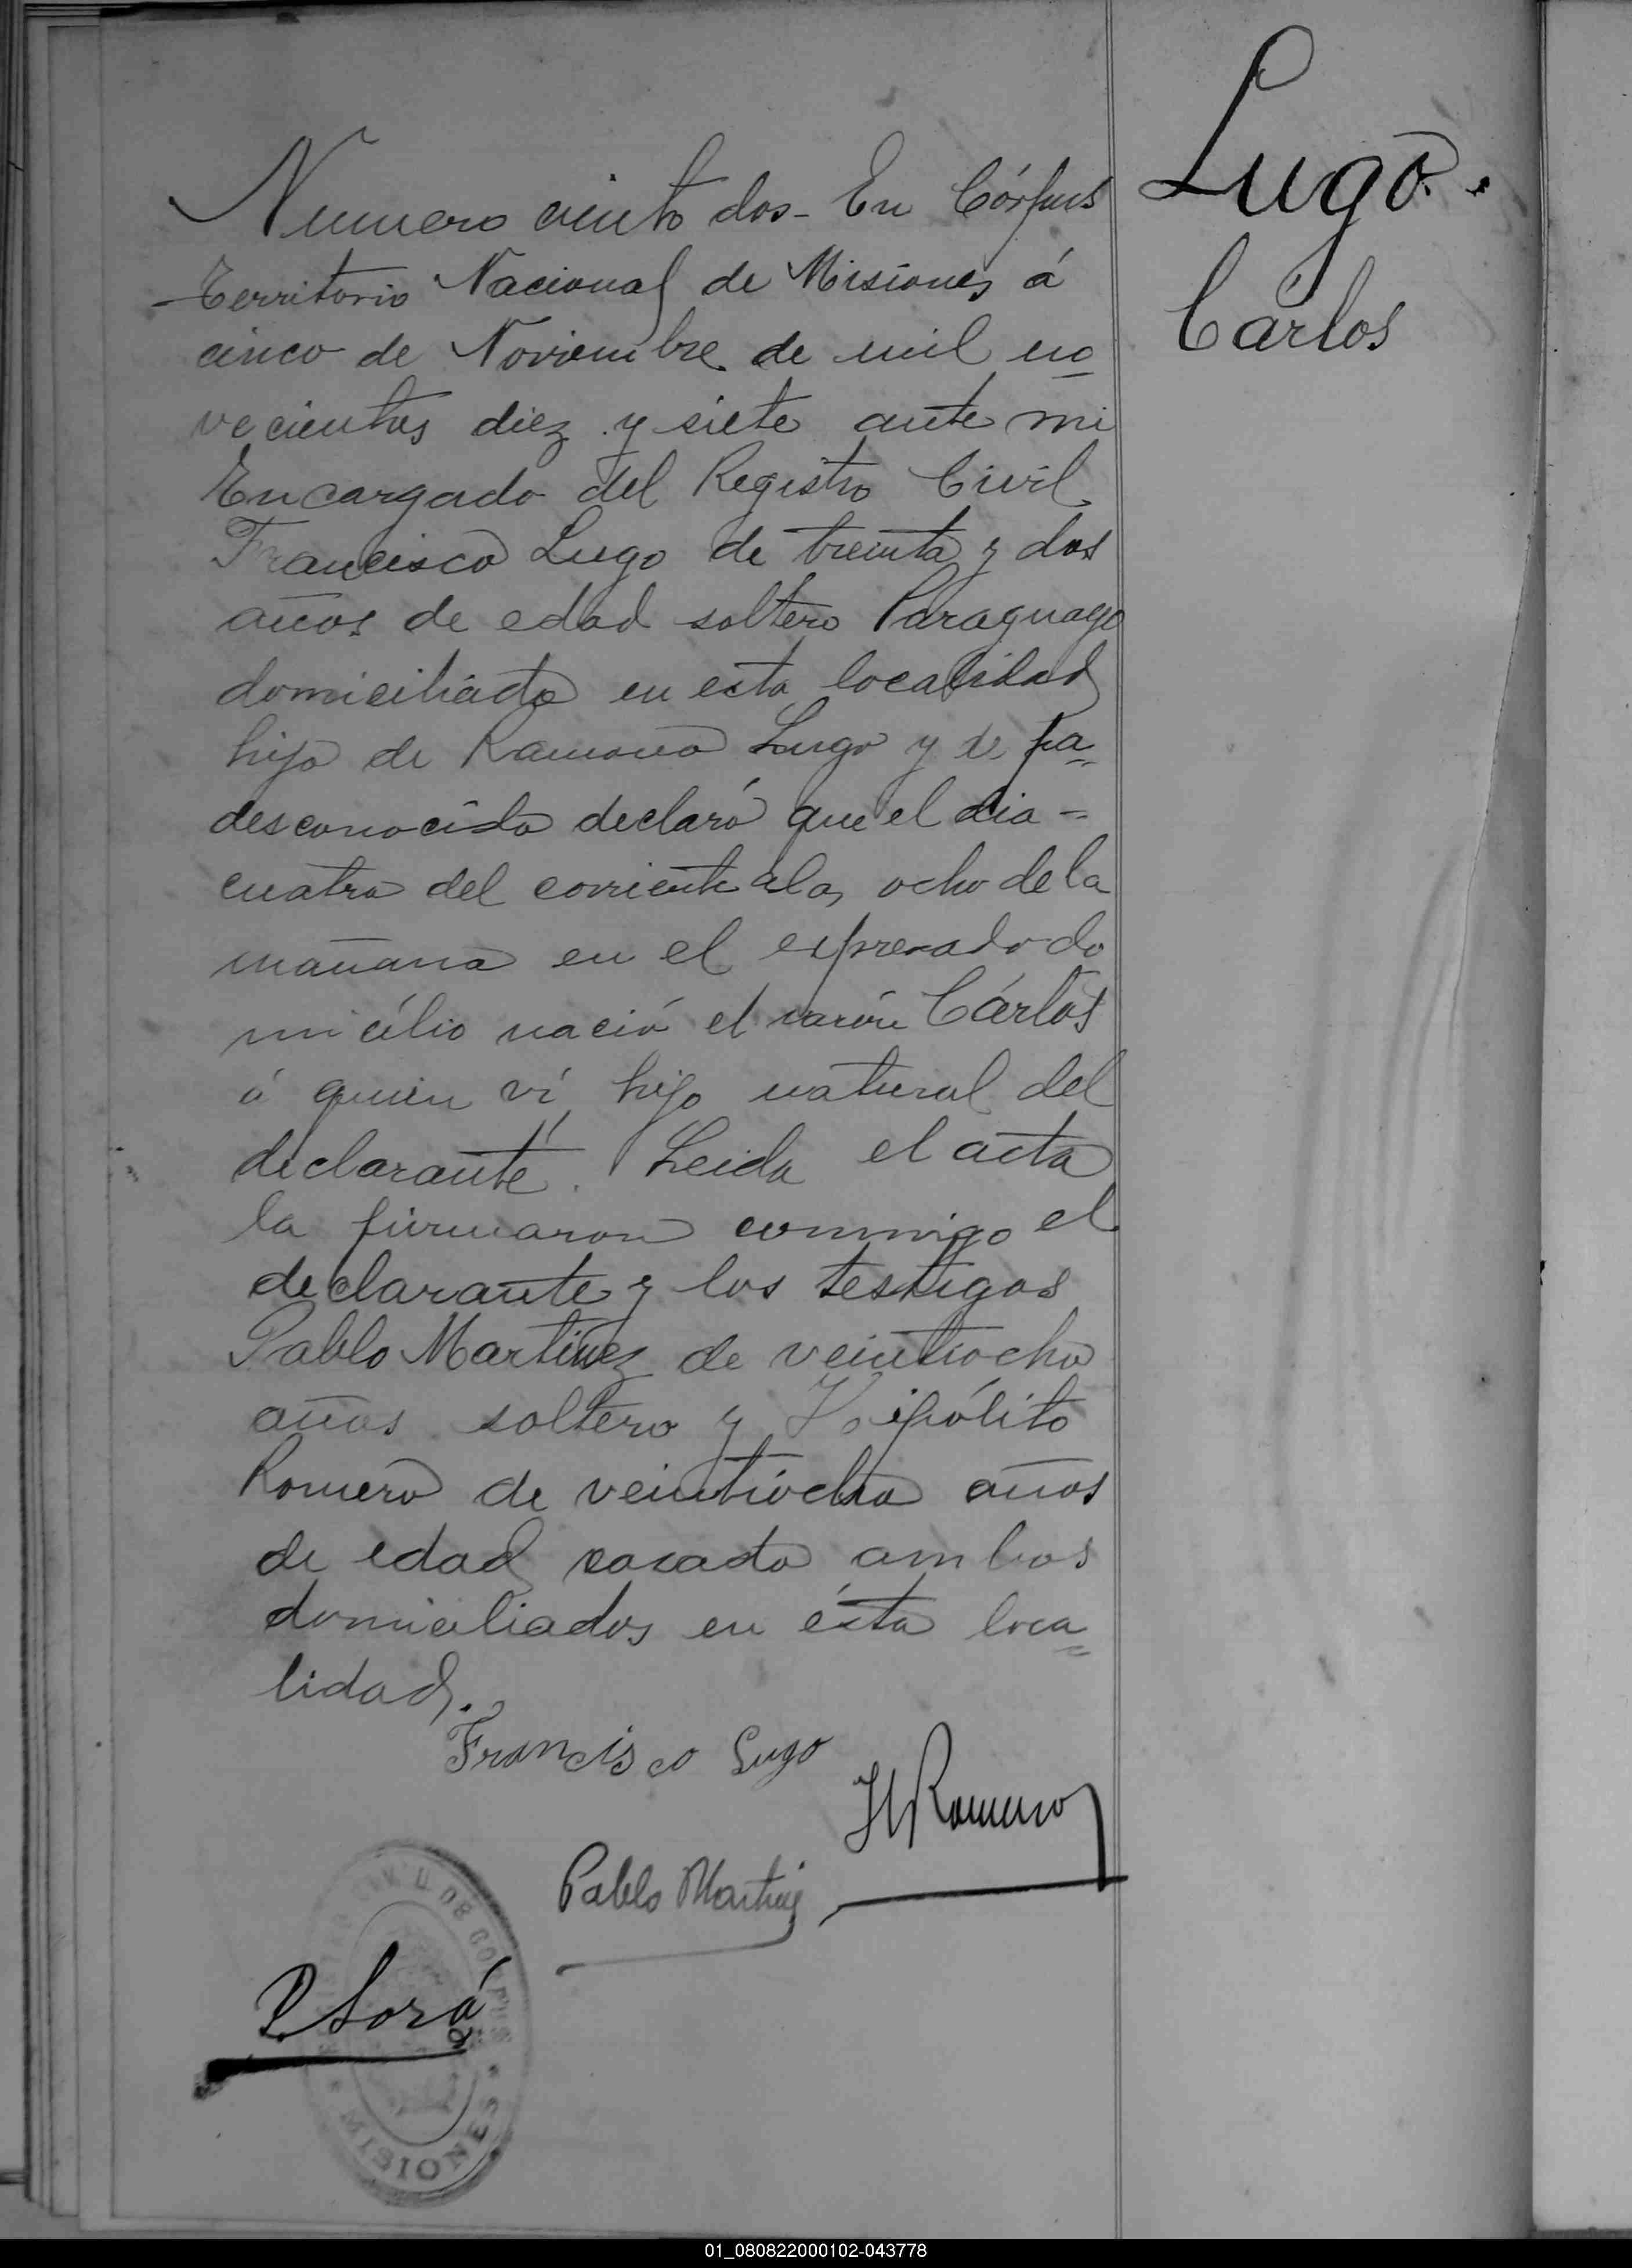 Lugo.
Carlos
Numero ciento dos - En Córpus
Territorio Nacional de Misiones á
cinco de Noviembre de mil no
vecientos diez y siete ante mi
Encargado del Registro Civil
Francisco Lugo de treinta y dos
años de edad soltero Paraguayo
domiciliado en esta localidad
hijo de Ramona Lugo y de pa=
desconocido declaró que el dia =
cuatro del corriente a las ocho de la
mañana en el expresado do
micilio nació el varón Cárlos
á quien ví hijo natural del
declarante. Leida el acta
la firmaron conmigo el
declarante y los testigos
Pablo Martinez de veintiocho
años soltero y Hipólito
Romero de veintiocho años
de edad casado ambos
domiciliados en ésta loca=
lidad.
Francisco Lugo
H Romero
Pablo Martinez
P Sorá
MISIONES
01_080822000102-043778